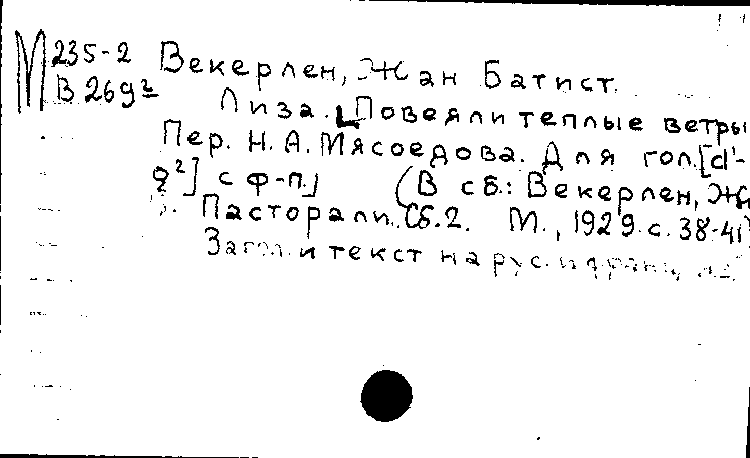 М 235-2 Векерлен, Жан Батист.
В 269² Лиза. [Повеяли теплые ветры
Пер. Н. А. Мясоедова. Для гол. [d'-
g²] с ф-п.] (В сб.: Векерлен, Ж.
Б. Пасторали. Сб. 2. М., 1929. с. 38-41)
Загол. и текст на рус. и франц. яз.